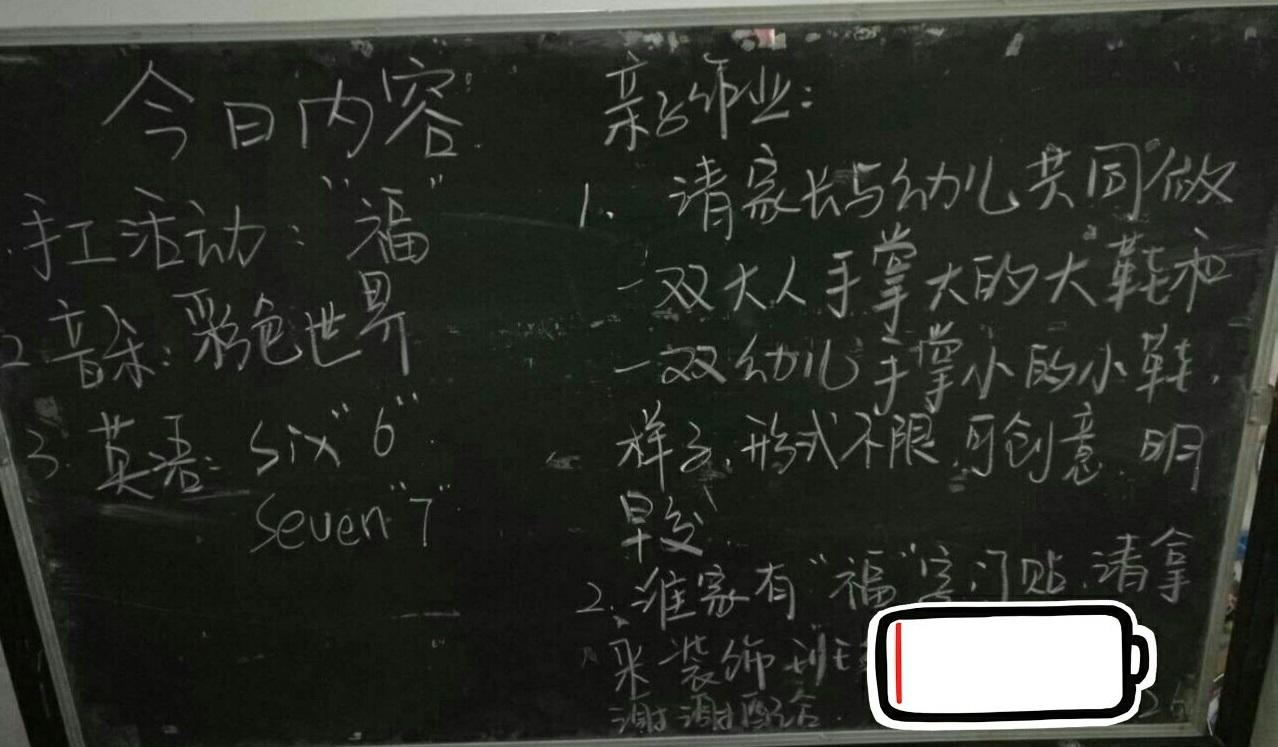 今日内容:
手工活动:“福”
2 音乐:彩色世界
3. 英语: six“6”
seven“7”
亲子作业:
1. 请家长与幼儿共同做
一双大人手掌大的大鞋和
一双幼儿手掌小的小鞋.
样子.形式不限.可创意.明
早交.
2. 谁家有“福”字门贴.请拿
来装饰班
谢谢配合.